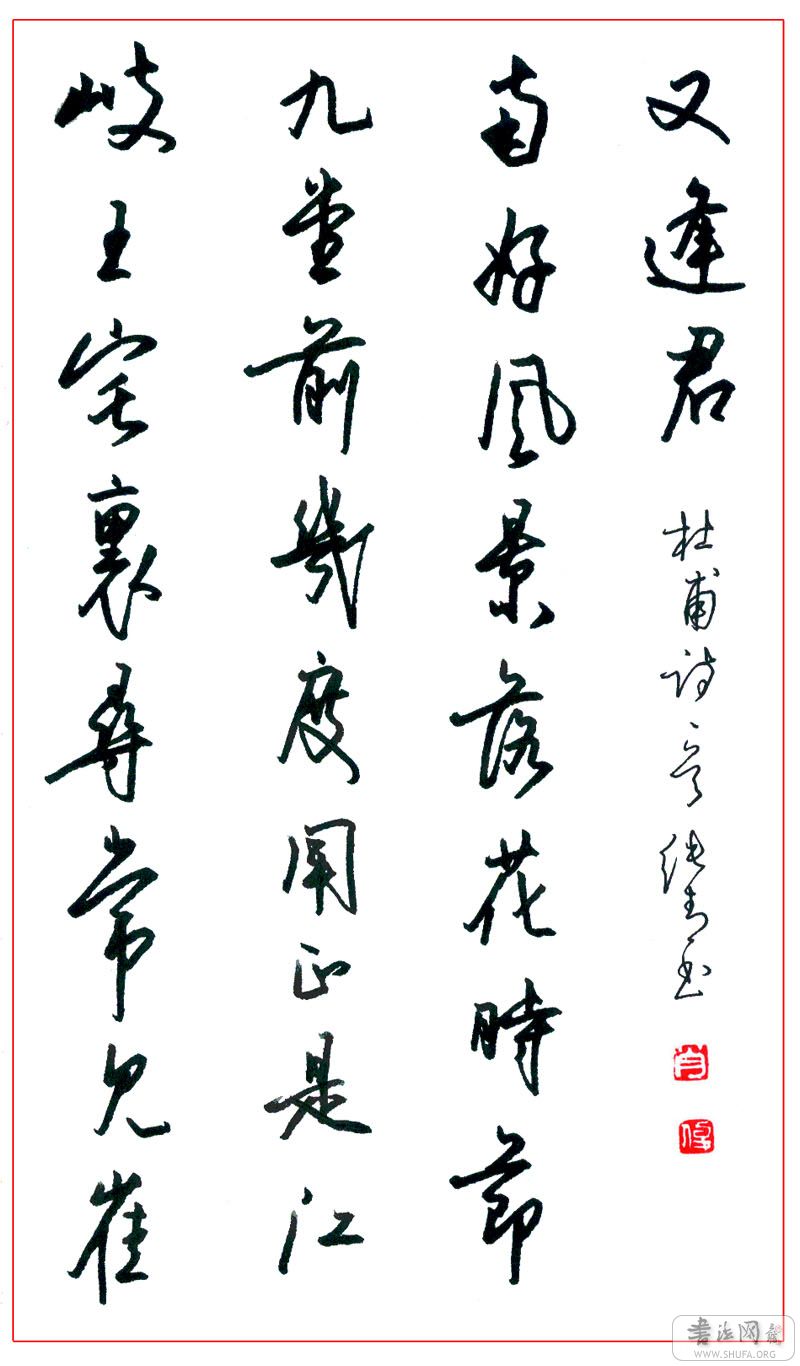 岐王宅裏尋常見崔
九堂前幾度聞正是江
南好風景落花時節
又逢君
杜甫诗
書法网
WWW.SHUFA.ORG